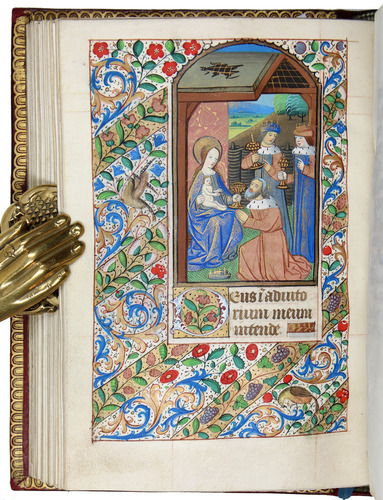 Deus i adiuto
rium meum
intende.